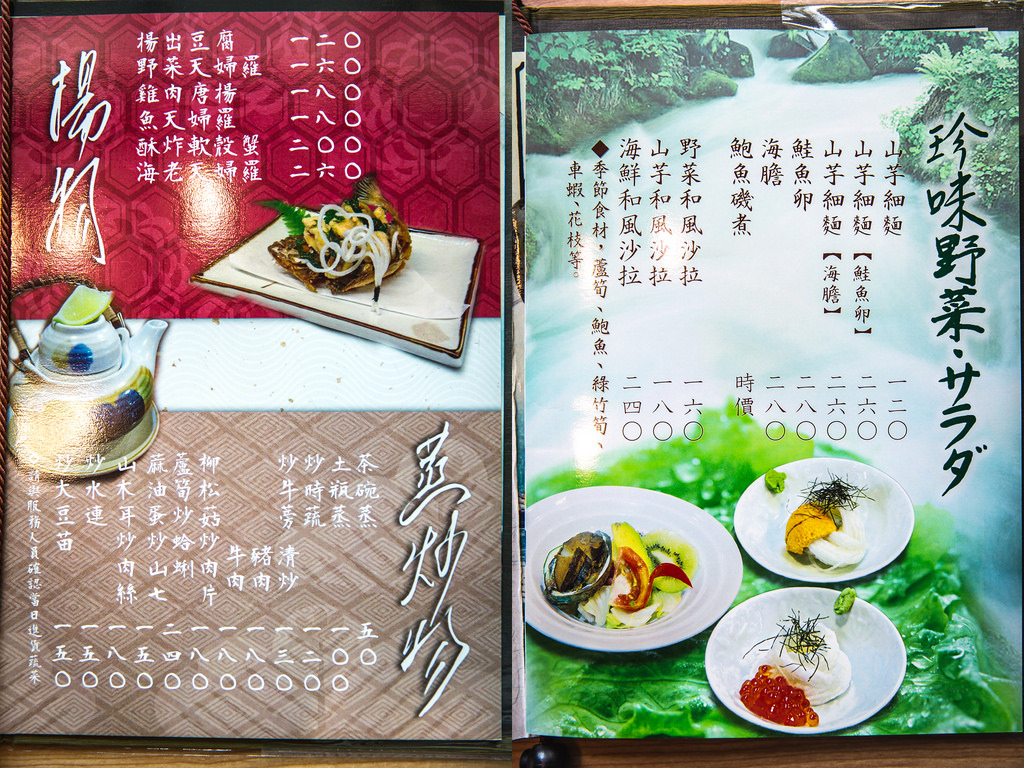 揚物
揚出豆腐 一二〇
野菜天婦羅 一六〇
雞肉唐揚 一八〇
魚天婦羅 一八〇
酥炸軟殼蟹 二〇〇
海老天婦羅 二六〇
蒸炒物
茶碗蒸 五〇
土瓶蒸 一〇〇
炒時蔬 一二〇
炒牛蒡 清炒 一三〇
豬肉 一八〇
牛肉 一八〇
柳松菇炒肉片 一八〇
蘆筍炒蛤蜊 二四〇
蔴油蛋炒山七 一五〇
山木耳炒肉絲 一八〇
炒水連 一五〇
炒大豆苗 一五〇
◎請與服務人員確認當日進貨蔬菜
珍味野菜・サラダ
山芋細麵 一二〇
山芋細麵【鮭魚卵】 二六〇
山芋細麵【海膽】 二六〇
鮭魚卵 二八〇
海膽 二八〇
鮑魚磯煮 時價
野菜和風沙拉 一六〇
山芋和風沙拉 一八〇
海鮮和風沙拉 二四〇
◆季節食材，蘆筍、鮑魚、綠竹筍、
車蝦、花枝等。